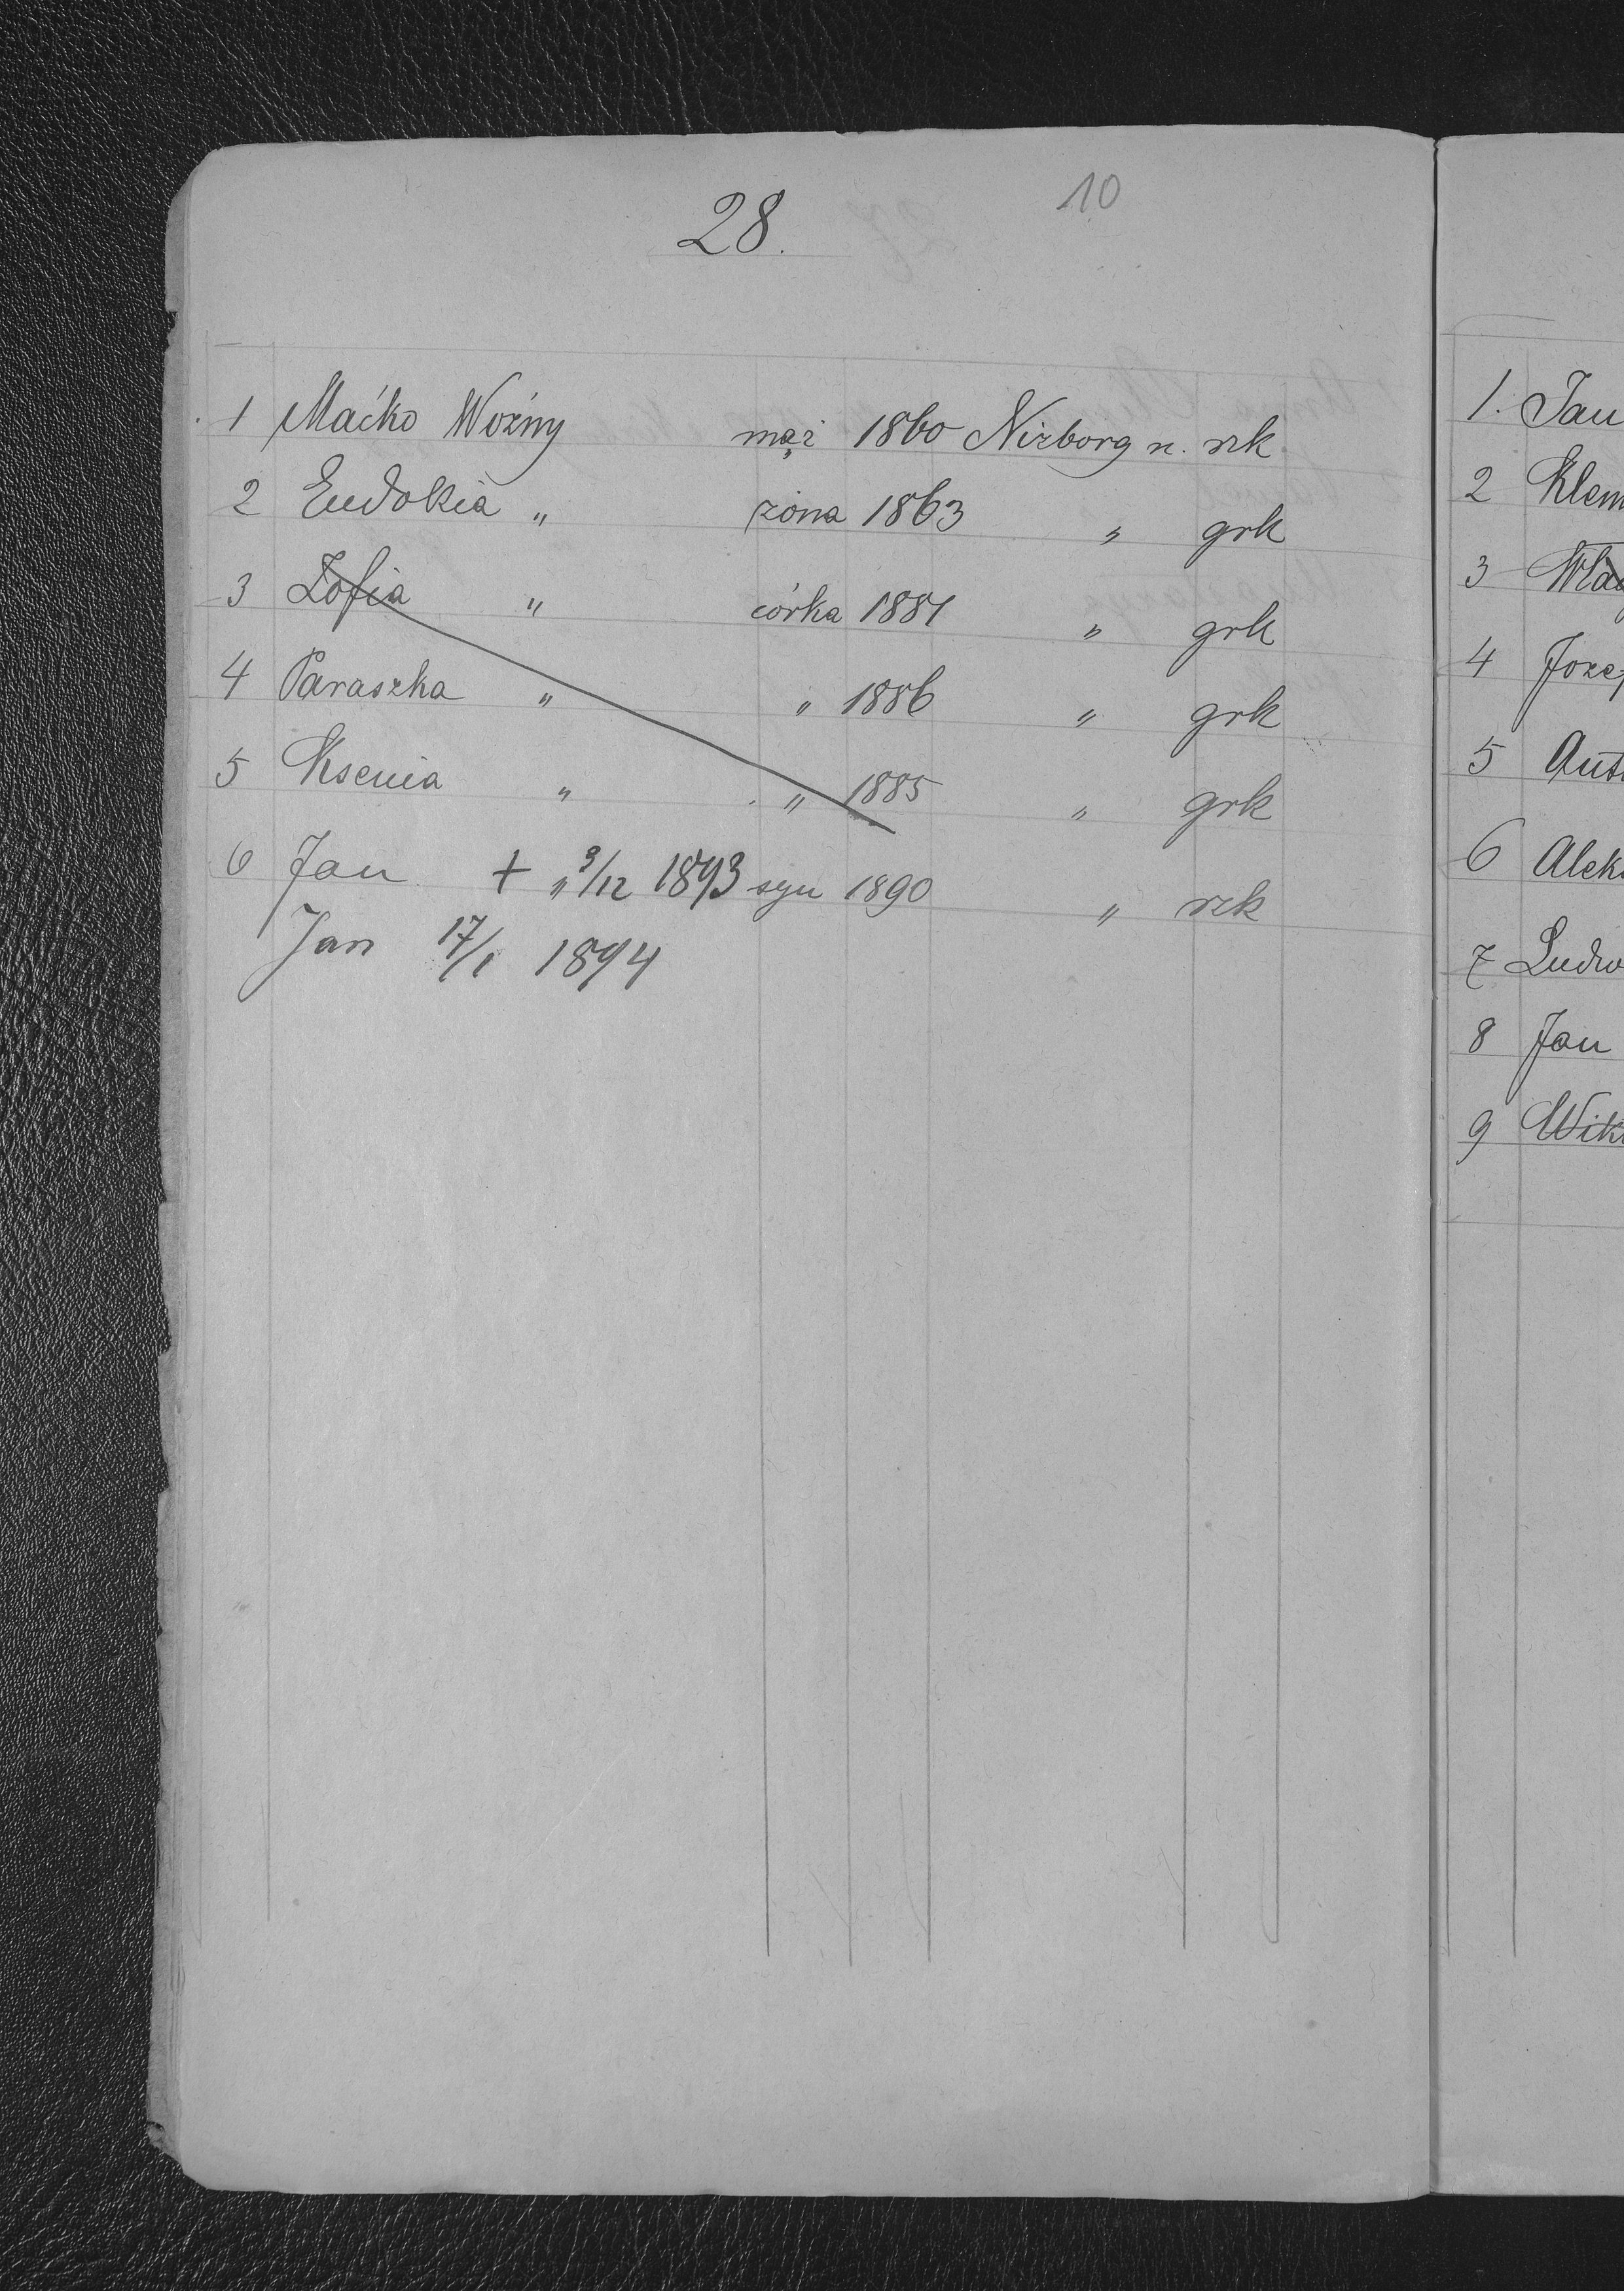 28.
10
1 Maćko Woźny mąż 1860 Niżborg n. rzk
2 Eudokia " żona 1863 " grk
3 Zofia " córka 1881 " grk
4 Paraszka " " 1886 " grk
5 Ksenia " " 1885 " grk
6 Jan + " 3/12 1893 syn 1890 " rzk
Jan 17/1 1894
1. Jan
2 Klem
3 Wła
4 Józef
5 Ant
6 Aleks
7 Ludw
8 Jan
9 Wikt